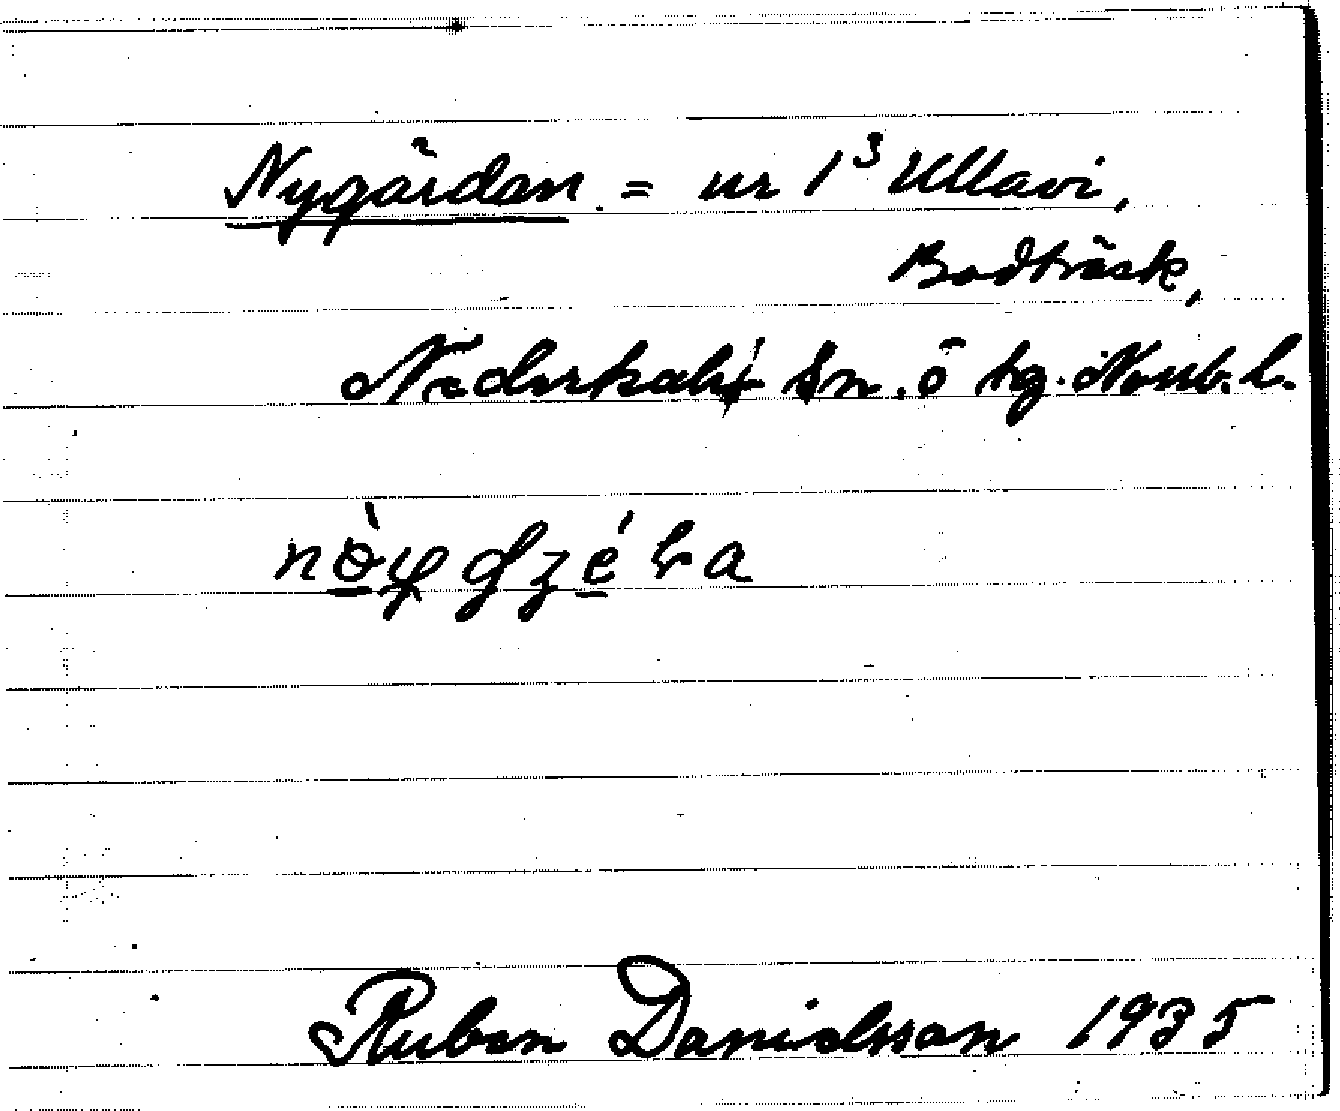 Nygårdan = ur 1³ Ullavi,
Bodträsk,
Nederkalix sn. ö tg. Norrb. l.
Ruben Danielsson 1935